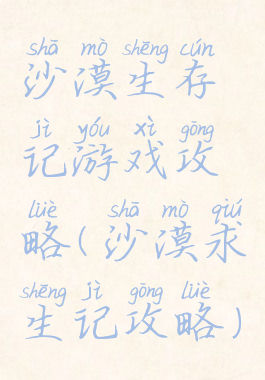 shā mò shēng cún
沙漠生存
jì yóu xì gōng
记游戏攻
lüè shā mò qiú
略(沙漠求
shēng jì gōng lüè
生记攻略)